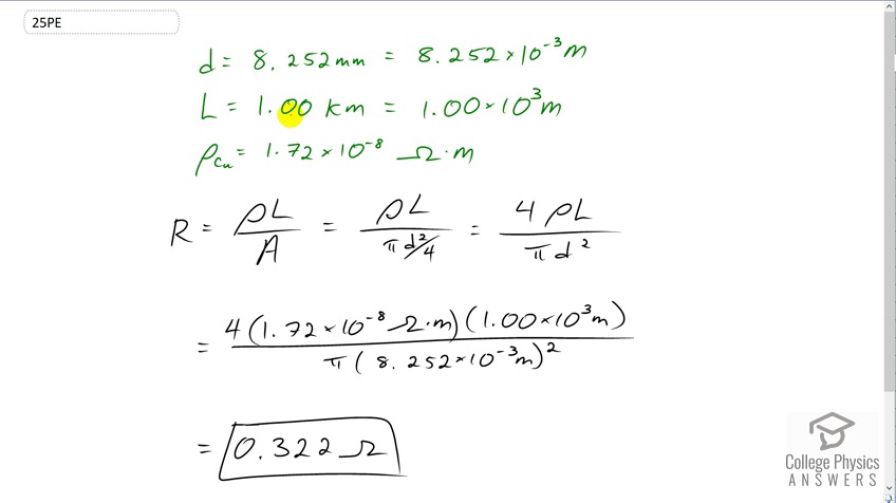 25PE
d = 8.252mm = 8.252×10⁻³m
L = 1.00 km = 1.00×10³m
ρCu = 1.72×10⁻⁸ Ω·m
R = ρL/A = ρL/(πd²/4) = 4ρL/(πd²)
= 4(1.72×10⁻⁸ Ω·m)(1.00×10³m)/(π(8.252×10⁻³m)²)
= 0.322 Ω
College Physics
ANSWERS